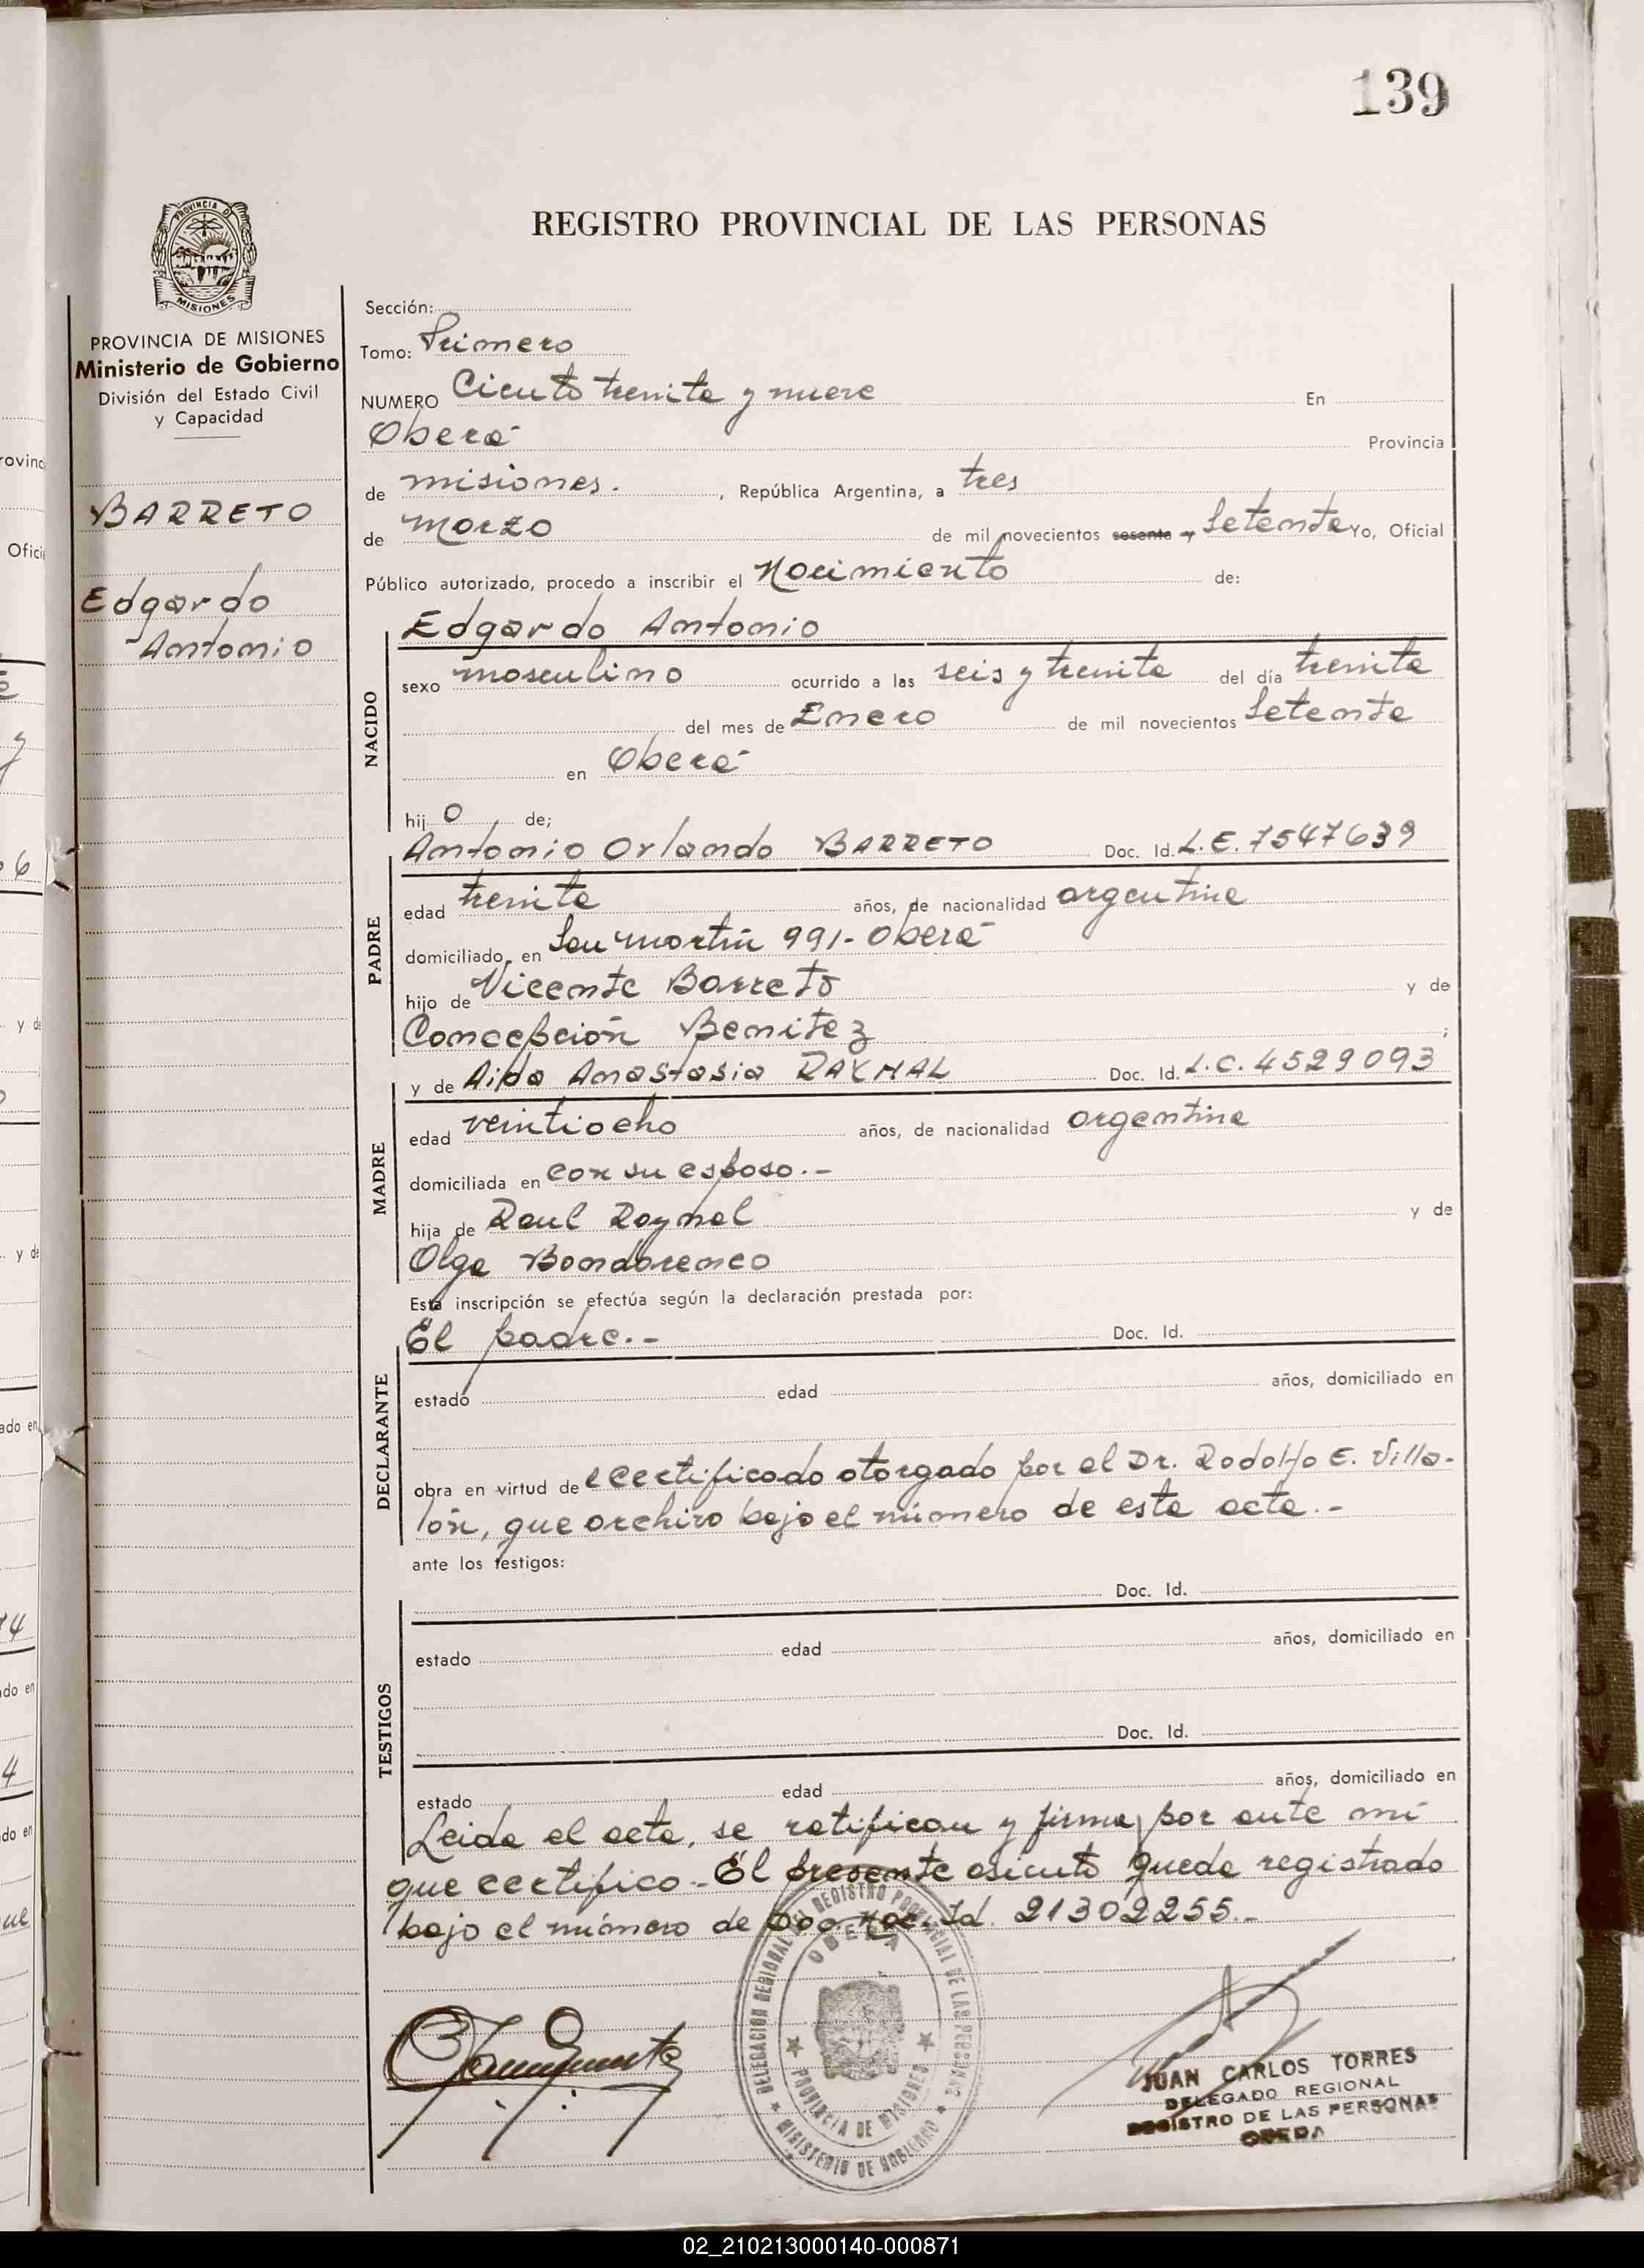 139
PROVINCIA DE
MISIONES
REGISTRO PROVINCIAL DE LAS PERSONAS
PROVINCIA DE MISIONES
Ministerio de Gobierno
División del Estado Civil
y Capacidad
BARRETO
Edgardo
Antonio
Sección:
Tomo: Primero
NUMERO Ciento treinta y nueve En
Oberá Provincia
de misiones. , República Argentina, a tres
de Marzo de mil novecientos sesenta y Setenta Yo, Oficial
Público autorizado, procedo a inscribir el Nacimiento de:
NACIDO
Edgardo Antonio
sexo masculino ocurrido a las seis y treinta del día treinta
del mes de Enero de mil novecientos Setenta
en Oberá
hij o de;
PADRE
Antonio Orlando BARRETO Doc. Id. L.E. 7547639
edad treinta años, de nacionalidad argentina
domiciliado en San Martín 991- Oberá
hijo de Vicente Barreto y de
Concepción Benitez ;
MADRE
y de Aida Anastasia RAYMAL Doc. Id. L.C. 4529093
edad veintiocho años, de nacionalidad argentina
domiciliada en con su esposo.-
hija de Raul Raymal y de
Olga Bondarenco
Esta inscripción se efectúa según la declaración prestada por:
DECLARANTE
El padre.- Doc. Id.
estado edad años, domiciliado en
obra en virtud de certificado otorgado por el Dr. Rodolfo E. Villa-
lón, que archivo bajo el número de esta acta.-
ante los testigos:
TESTIGOS
Doc. Id.
estado edad años, domiciliado en
Doc. Id.
estado edad años, domiciliado en
Leida el acta, se ratifican y firma por ante mí
que certifico.- El presente asiento queda registrado
bajo el número de Doc. Nac. Id. 21302255.-
DELEGACION REGIONAL REGISTRO PROVINCIAL DE LAS PERSONAS
OBERA
PROVINCIA DE MISIONES
MINISTERIO DE GOBIERNO
JUAN CARLOS TORRES
DELEGADO REGIONAL
REGISTRO DE LAS PERSONAS
OBERA
02_210213000140-000871